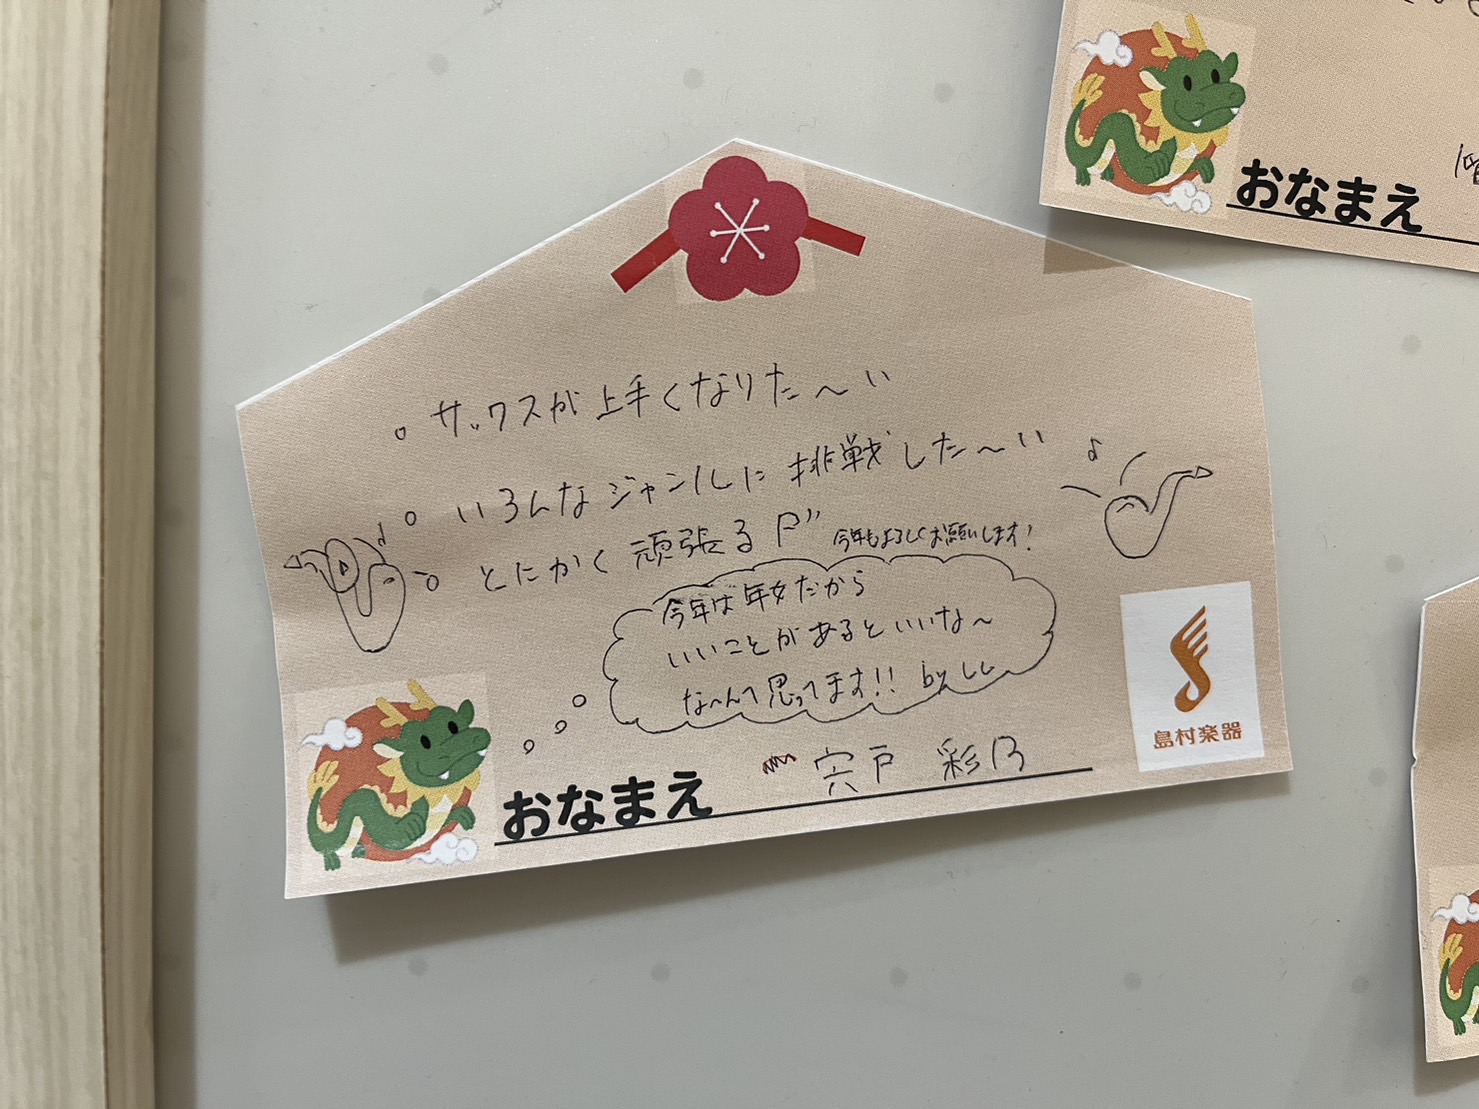 おなまえ
。サックスが上手くなりた〜い
。いろんなジャンルに挑戦した〜い
。とにかく頑張る
今年もよろしくお願いします!
今年は年女だから
いいことがあるといいな〜
な〜んて思ってます!! by
おなまえ 宍戸 彩乃
島村楽器